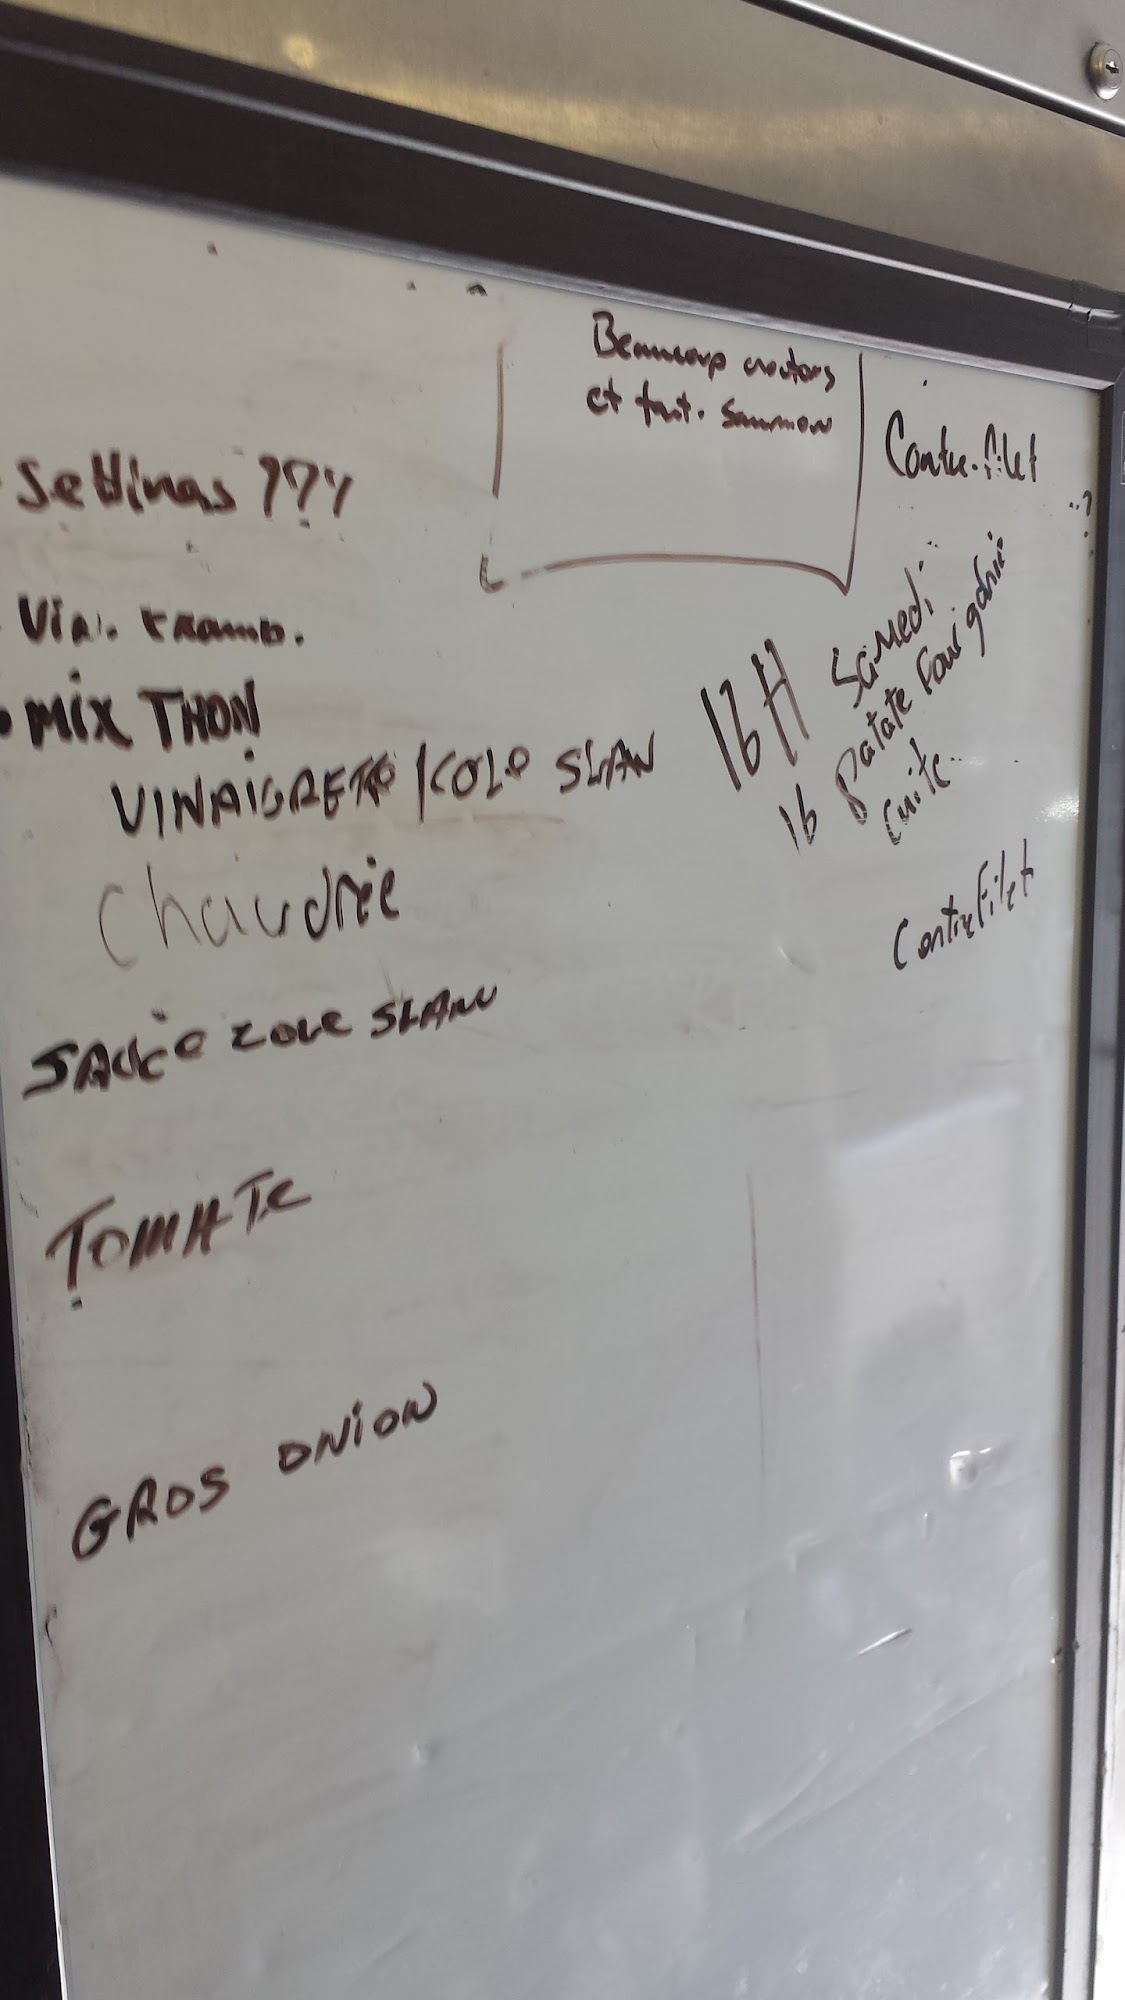 Beaucoup croutons
et fait. Saumon
Contre-filet
Settinas ???
Vin. tramb.
• MIX THON
VINAIGRETTE/COLE SLAW
Chaudrée
SAUCE COLE SLAW
TOMATE
GROS ONION
16H Samedi
16 Patate Four
cuite
Contrefilet